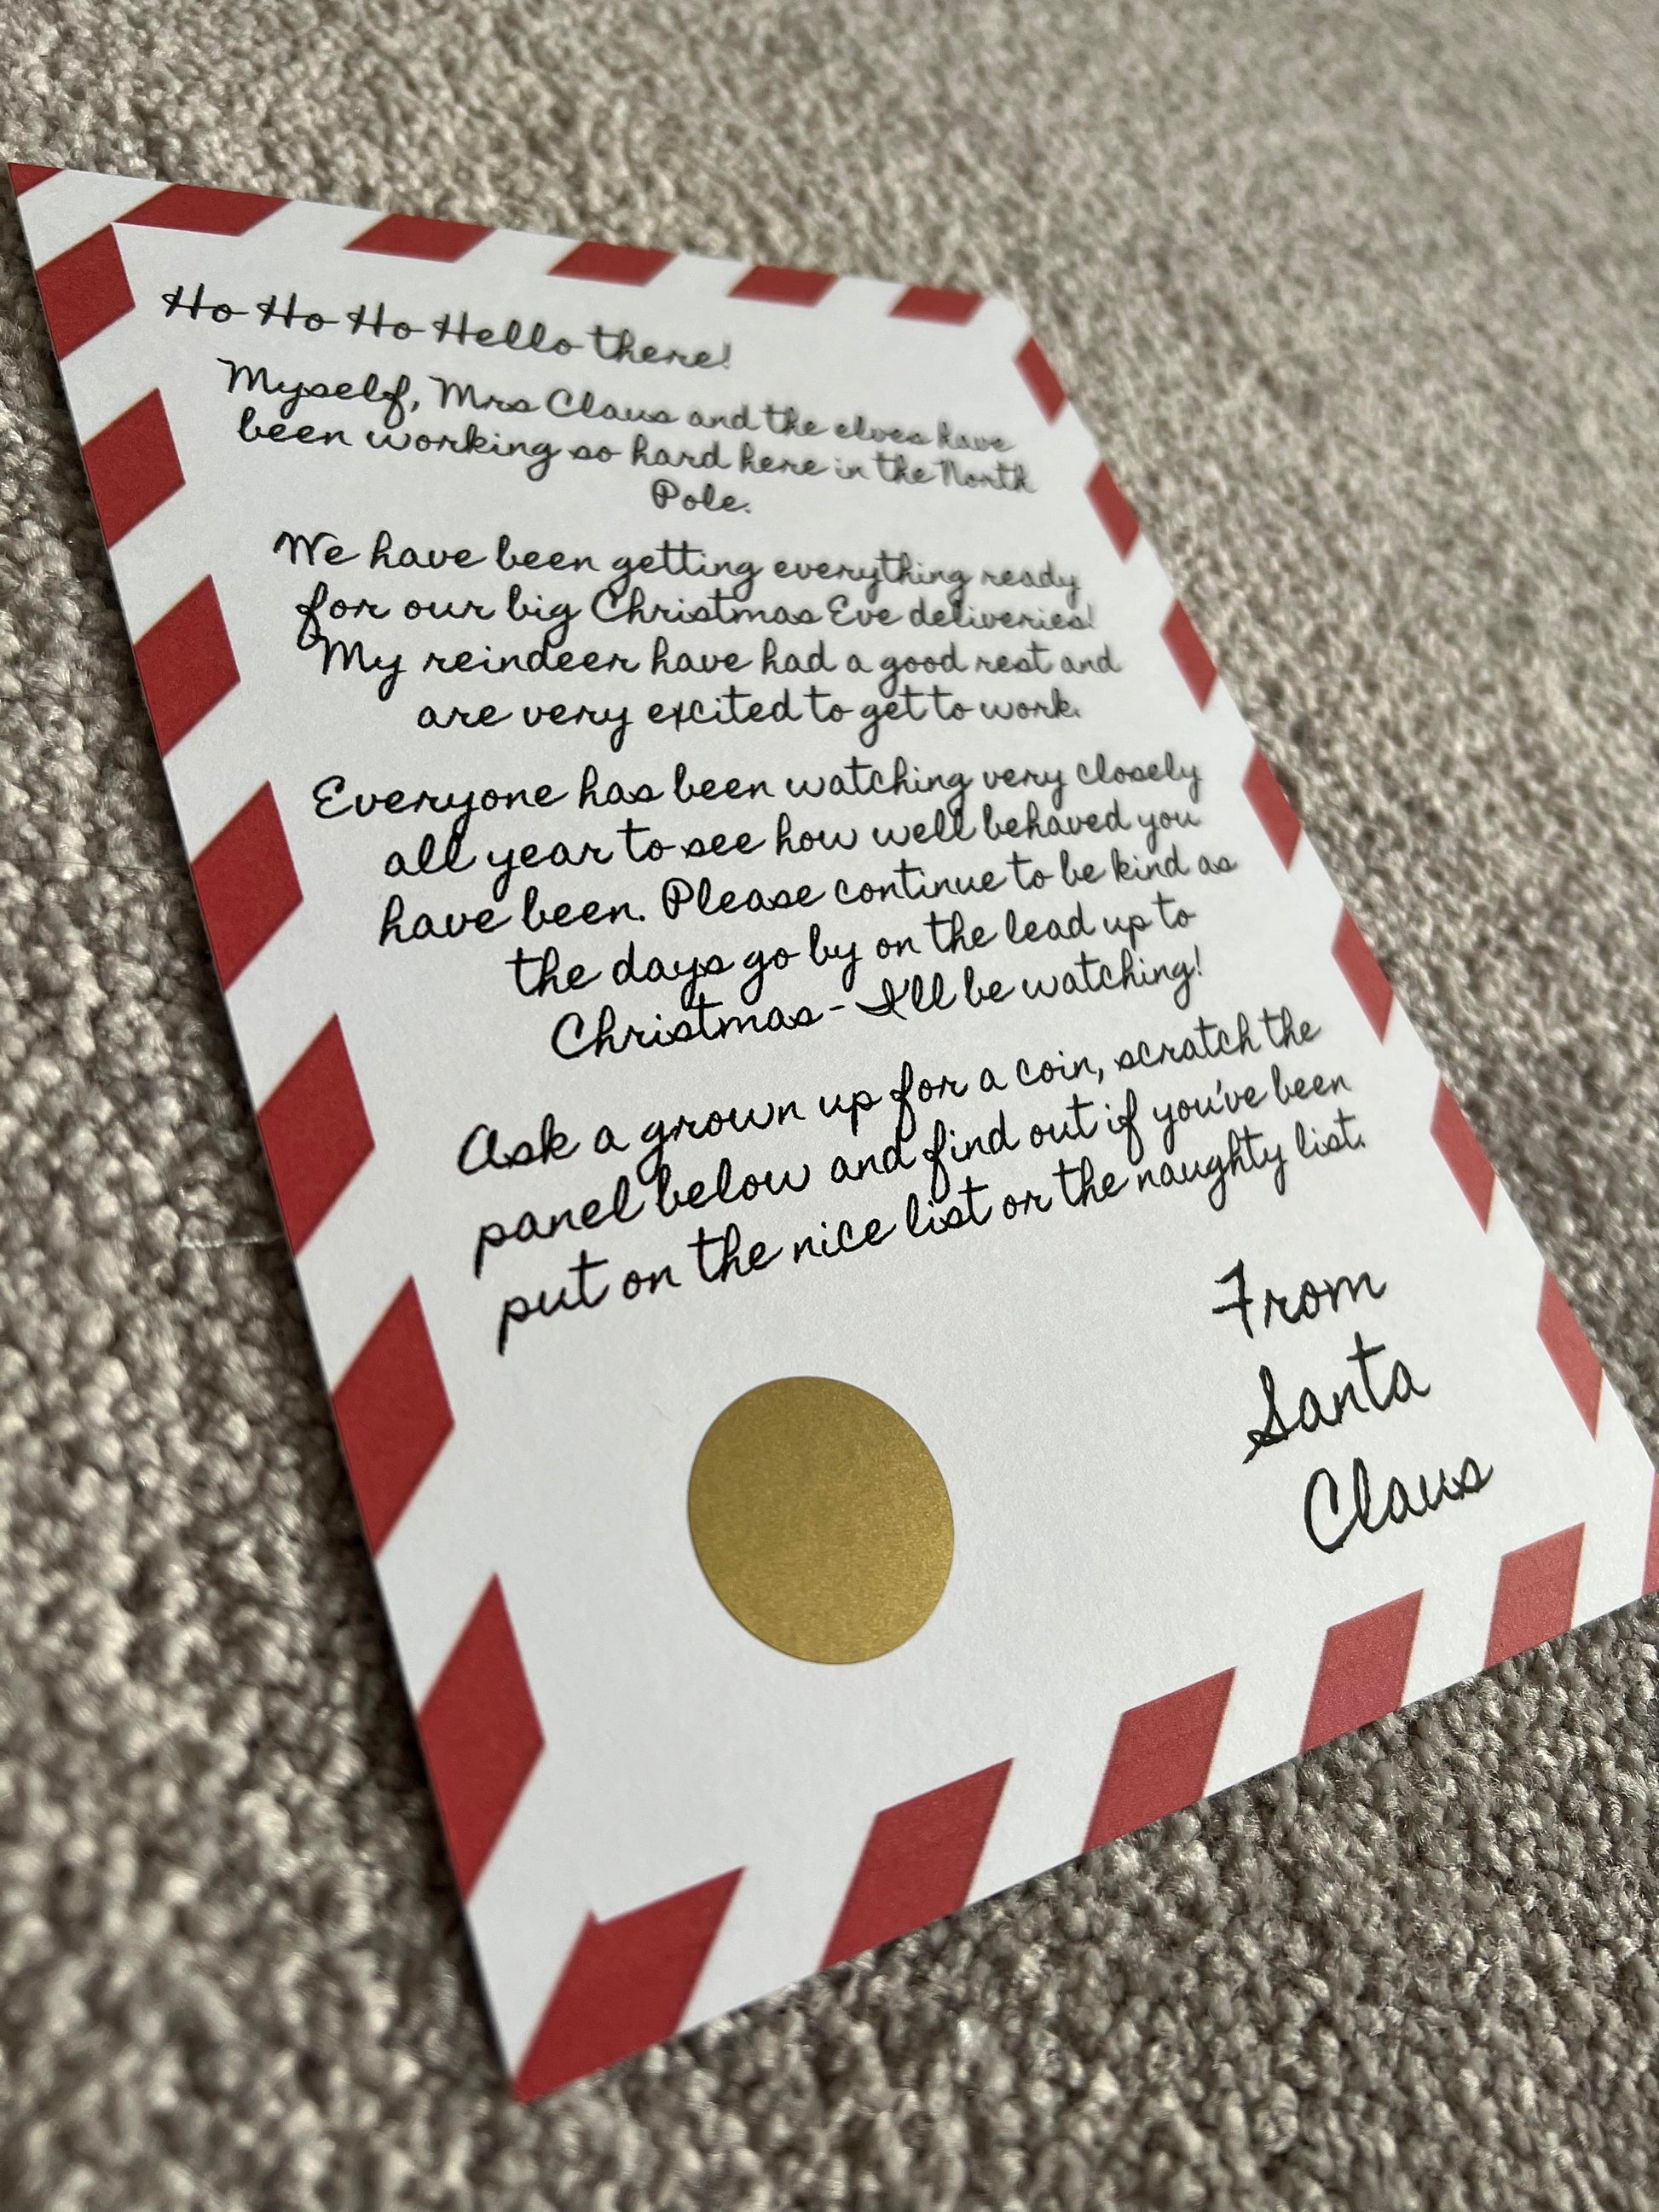 Ho Ho Ho Hello there!
Myself, Mrs Claus and the elves have
been working so hard here in the North
Pole.
We have been getting everything ready
for our big Christmas Eve deliveries!
My reindeer have had a good rest and
are very excited to get to work.
Everyone has been watching very closely
all year to see how well behaved you
have been. Please continue to be kind as
the days go by on the lead up to
Christmas - I'll be watching!
Ask a grown up for a coin, scratch the
panel below and find out if you've been
put on the nice list or the naughty list.
From
Santa
Claus